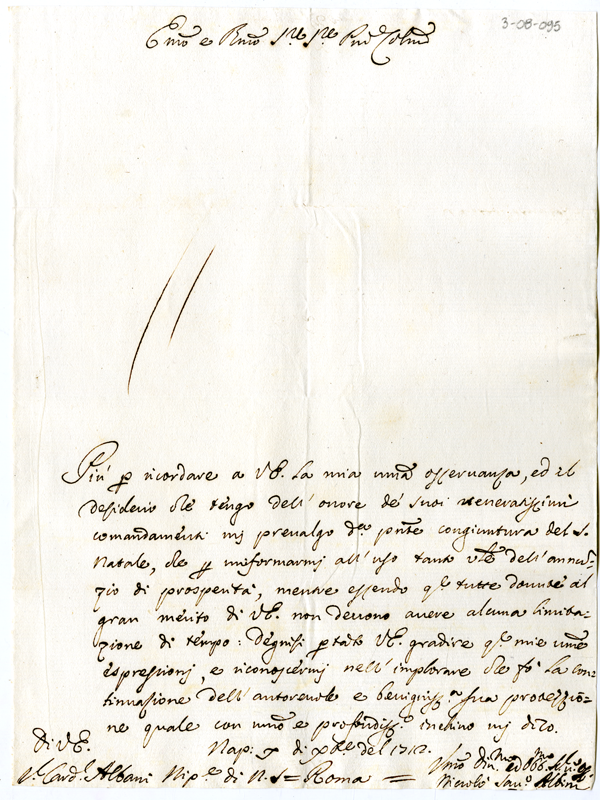 3-08-095
Emo e Rmo Sre Sre Pne Colmo
Più p ricordare a V.E. la mia umã osservanza, ed il
desiderio che tengo dell'onore de' suoi veneratissimi
comandamenti mj prevalgo dla pnte congiuntura del S.
Natale, che p uniformarmj all'uso tanto vle dell'annun-
zio di prosperità, mentre essendo qste tutte dovute al
gran merito di V.E. non devono avere alcuna limita-
zione di tempo: Degnisi ptãto V.E. gradire qste mie ume
espressionj, e riconoscermj nell'implorare che fò la con-
tinuazione dell'autorevole e benignissa sua protezzio-
ne quale con umo e profondisso inchino mj dico.
Di V.E.
Nap: di xbre del 1712.
Sr. Card. Albani Nipe di N. Sre Roma =
Umo Divmo ed Obbmo
Nicolò Albini